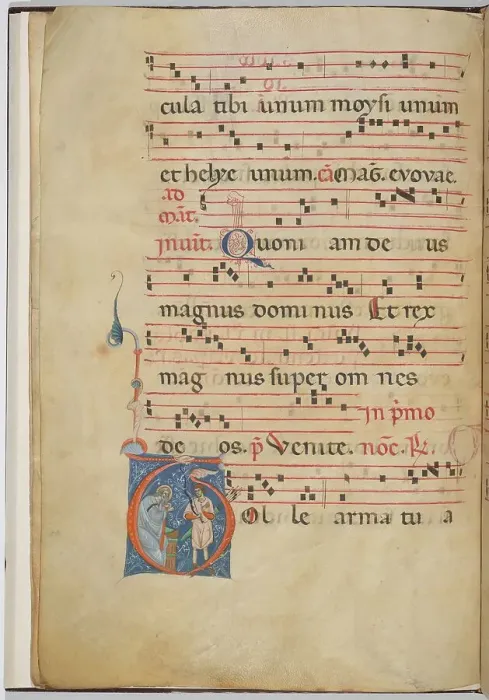 cula tibi unum moysi unum
et helye unum. cā Mag̅. evovae.
ad
mat̅.
invit̅. Quoni am de us
magnus domi nus Et rex
mag nus super om nes
In p̅mo
de os. p̅ Venite. noc̅. R̅.
Tol le arma tu a